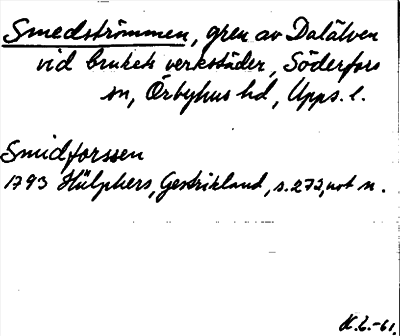 Smedströmmen, gren av Dalälven
vid brukets verkstäder, Söderfors
sn, Örbyhus hd, Upps. l.
Smidforssen
1793 Hülphers, Gestrikland, s. 272, not n.
K.L.-61.